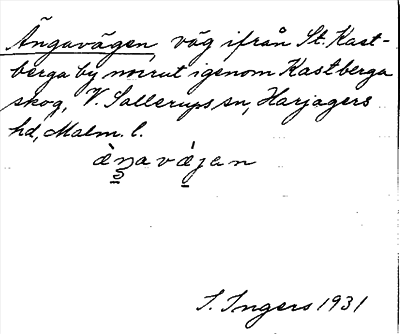 Ängavägen, väg ifrån St. Kast-
berga by norrut igenom Kastberga
skog, V. Sallerups sn, Harjagers
hd, Malm. l.
æ̀ŋavæ̀jan
I. Ingers 1931